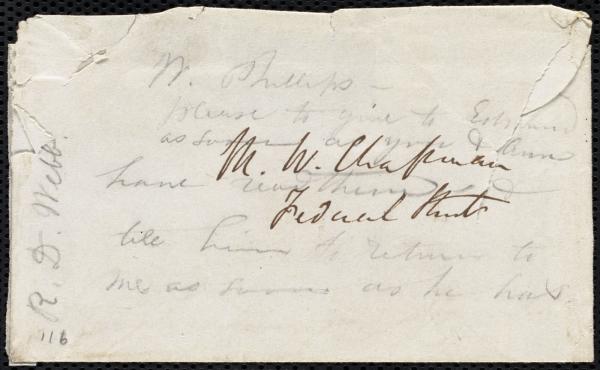 W. Phillips -
please to give to Edmund
as soon as you & Ann
M. W. Chapman
have read them and
Federal Street
tell him to return to
me as soon as he has.
R. D. Webb.
116